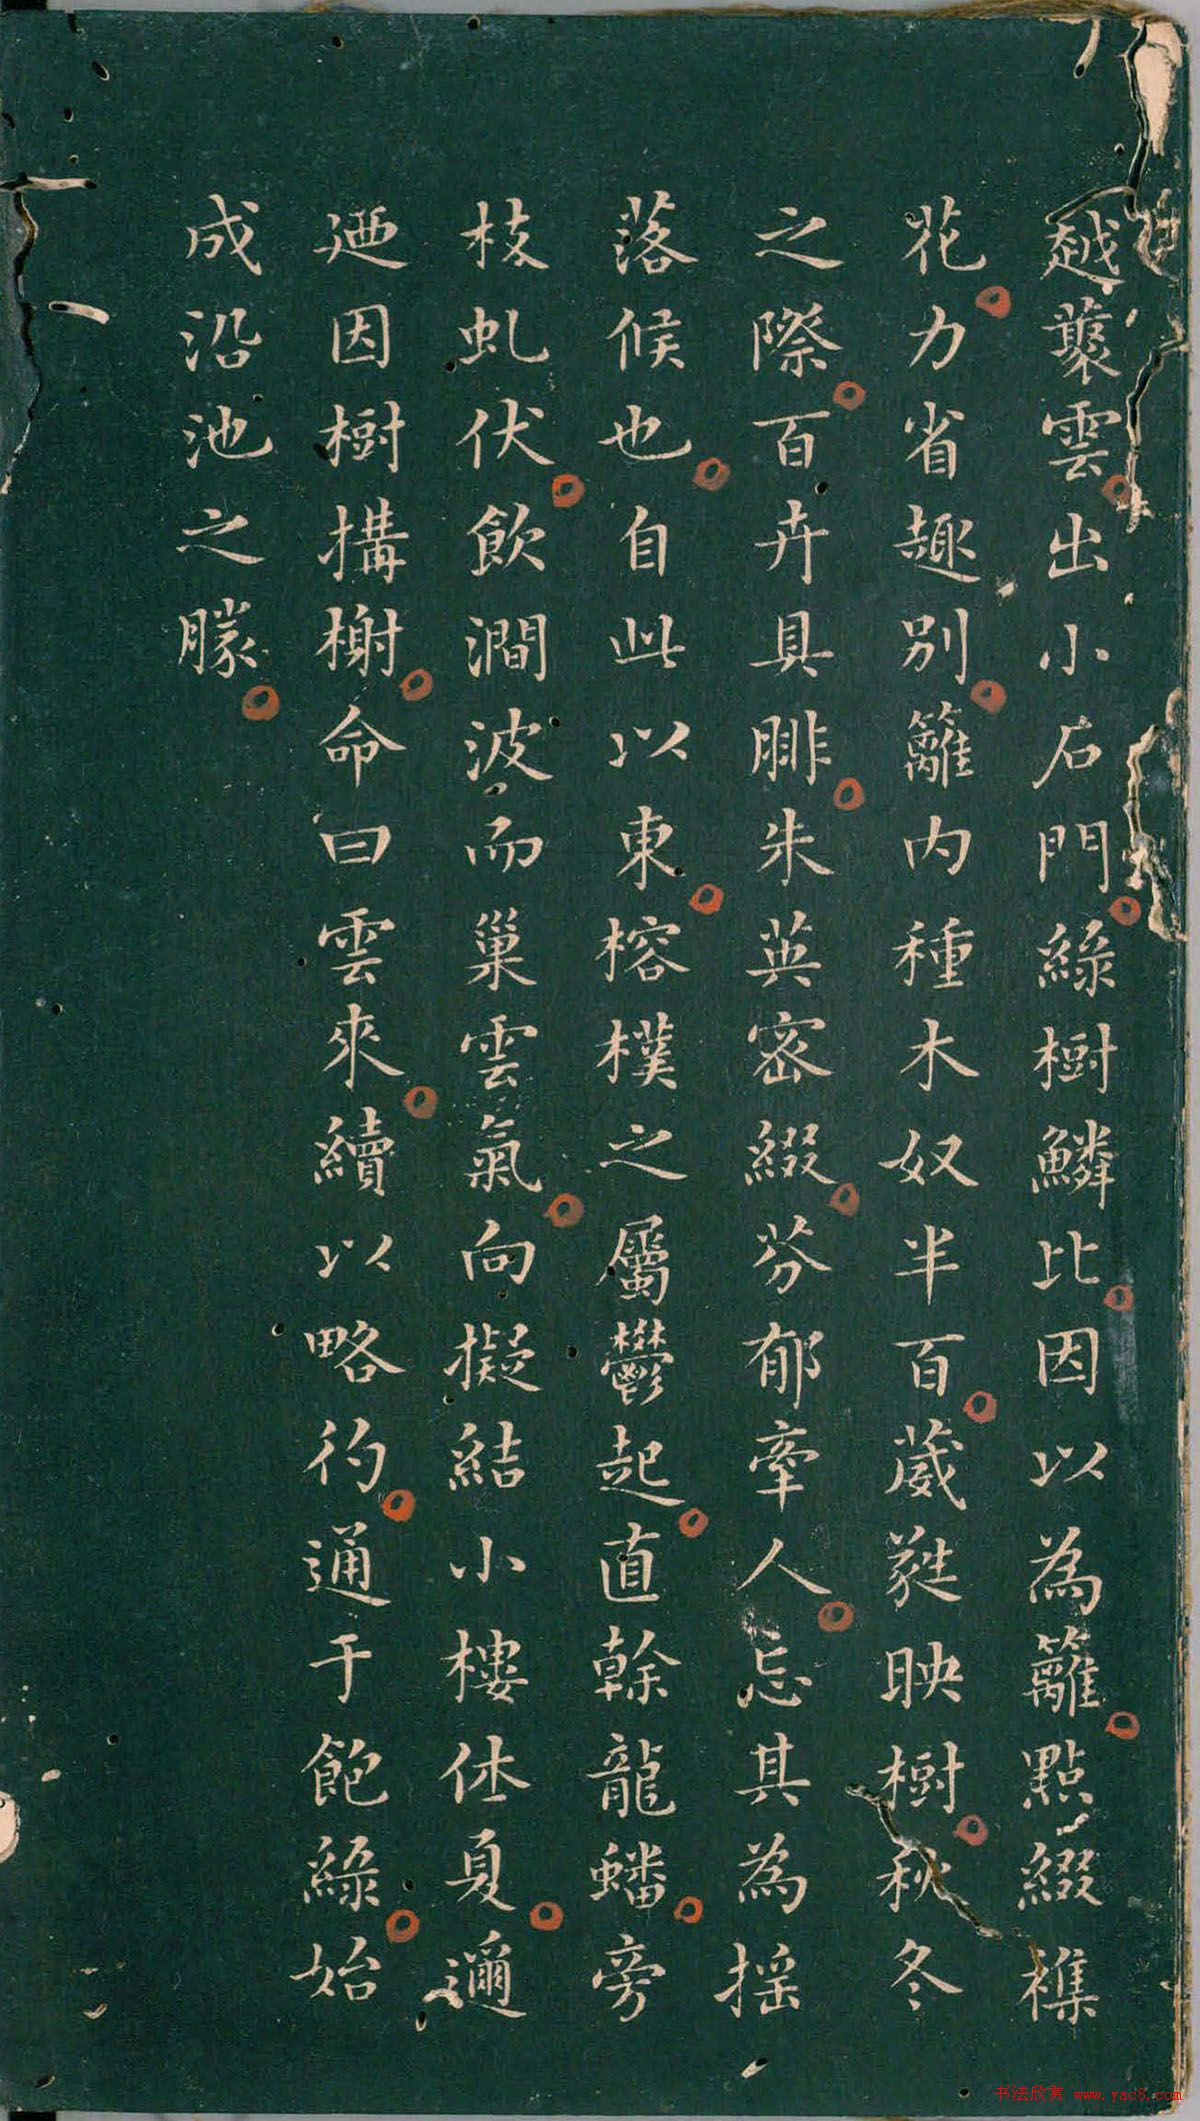 越藂雲出小石門綠樹鱗比因以為籬點綴襍
花力省趣別籬内種木奴半百葳蕤映樹秋冬
之際百卉具腓朱英密綴芬郁牽人忘其為揺
落候也自此以東榕樸之屬鬱起直榦龍蟠旁
枝虬伏飲澗波而巢雲氣向擬結小樓休夏邇
廼因樹搆榭命曰雲來續以略彴通于飽綠始
成沿池之勝
书法欣赏 www.yac8.com